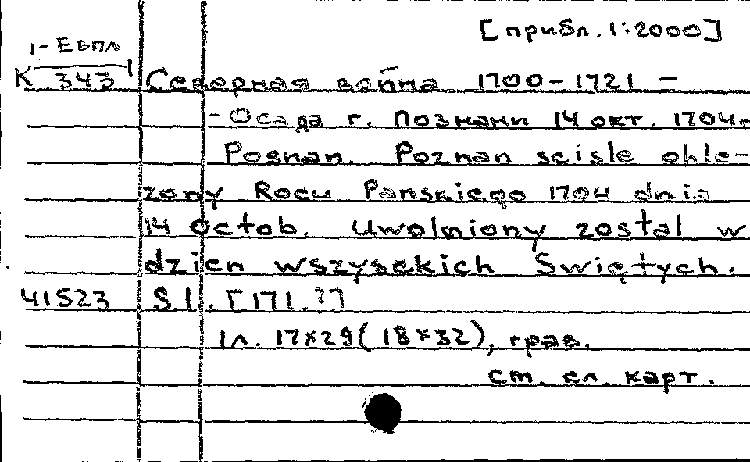 [прибл. 1:2000]
1-Евпл
К 343 Северная война 1700-1721 -
- Осада г. Познани 14 окт. 1704.
Posnan. Poznan scisle oble-
zony Rocu Panskiego 1704 dnia
14 Octob. Uwolniony zostal w
dzien wszysckich Swiętych.
41523 S.l. [171.?]
1л. 17x29(18x32), грав.
ст. кл. карт.